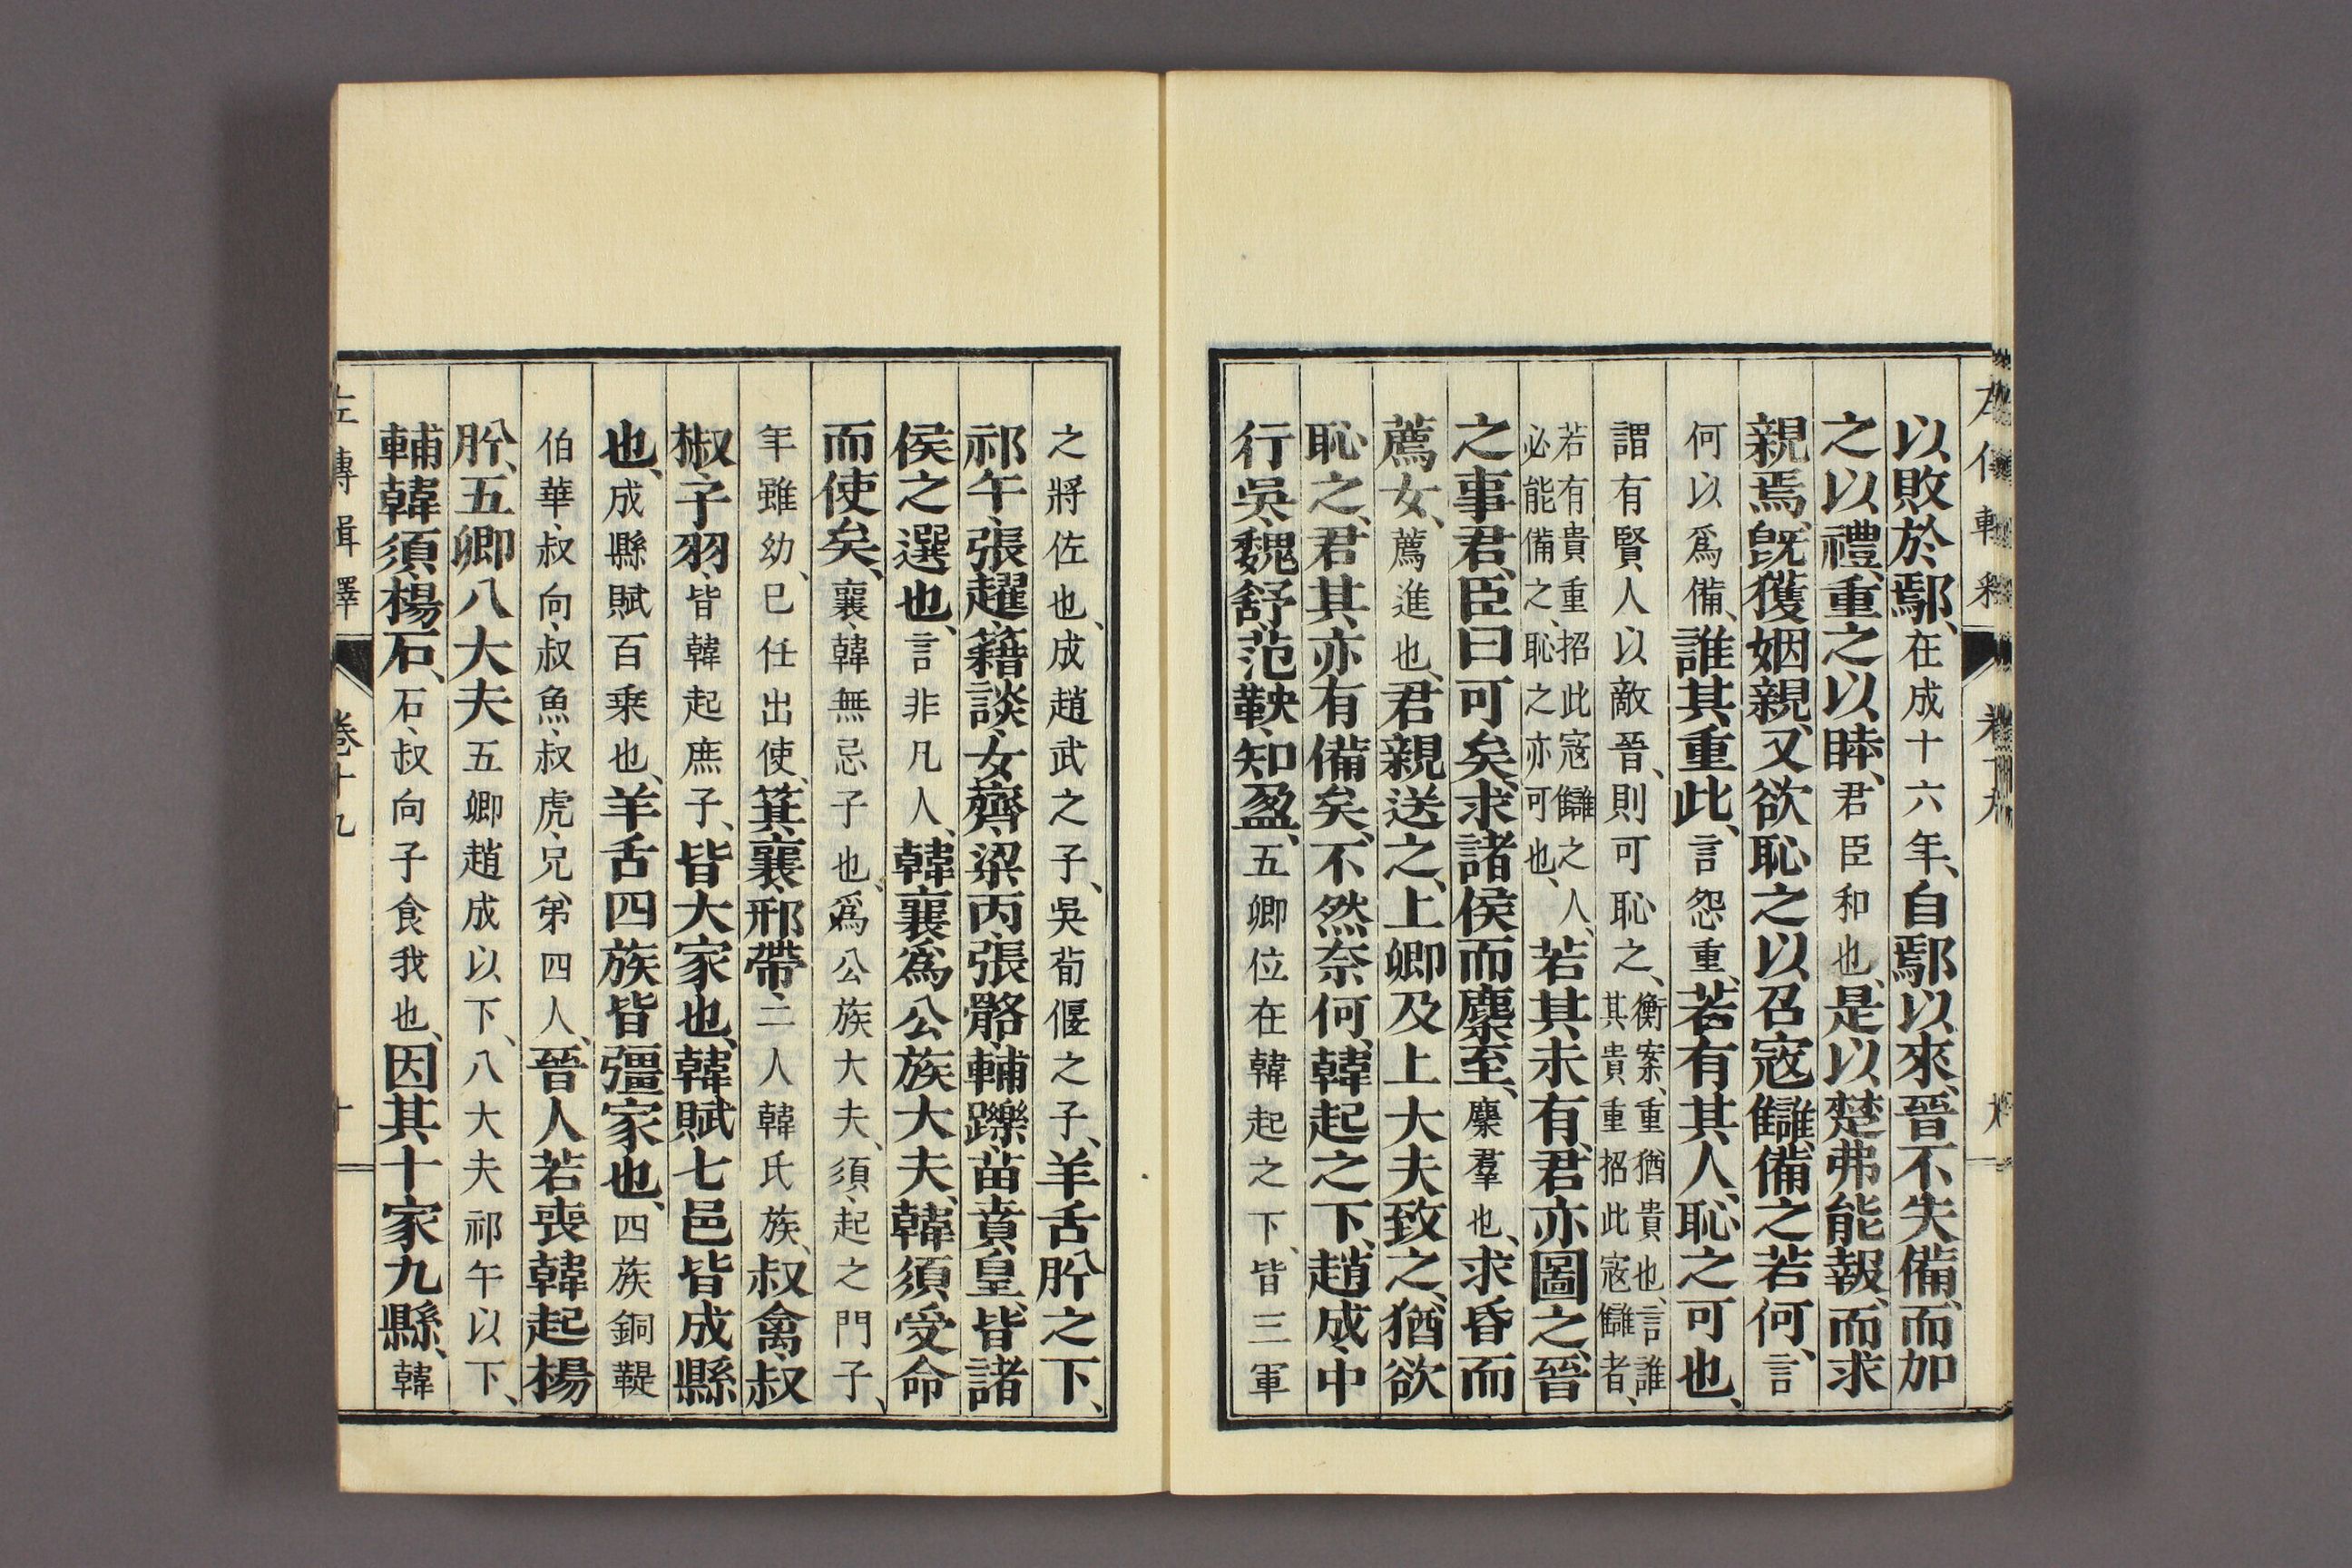 以敗於鄢、在成十六年、自鄢以來、晉不失備、而加
之以禮、重之以睦、君臣和也、是以楚弗能報、而求
親焉、旣獲姻親、又欲恥之、以召寇讎、備之若何、言
何以爲備、誰其重此、言怨重、若有其人、恥之可也、
謂有賢人以敵晉、則可恥之、衡案、重猶貴也、言誰其貴重招此寇讎者、
若有貴重招此寇讎之人、必能備之、恥之亦可也、若其未有、君亦圖之、晉
之事君、臣曰可矣、求諸侯而麋至、麋羣也、求昏而
薦女、薦進也、君親送之、上卿及上大夫致之、猶欲
恥之、君其亦有備矣、不然奈何、韓起之下、趙成、中
行吳、魏舒、范鞅、知盈、五卿位在韓起之下、皆三軍
之將佐也、成趙武之子、吳荀偃之子、羊舌肸之下、
祁午、張趯、籍談、女齊、梁丙、張骼、輔躒、苗賁皇、皆諸
侯之選也、言非凡人、韓襄爲公族大夫、韓須受命
而使矣、襄、韓無忌子也、爲公族大夫、須、起之門子、
年雖幼、已任出使、箕襄、邢帶、二人韓氏族、叔禽、叔
椒、子羽、皆韓起庶子、皆大家也、韓賦七邑皆成縣
也、成縣賦百乘也、羊舌四族皆彊家也、四族銅鞮
伯華、叔向、叔魚、叔虎、兄弟四人、晉人若喪韓起楊
肸、五卿八大夫五卿趙成以下、八大夫祁午以下、
輔韓須、楊石、石、叔向子食我也、因其十家九縣、韓
左傳輯釋 卷十九